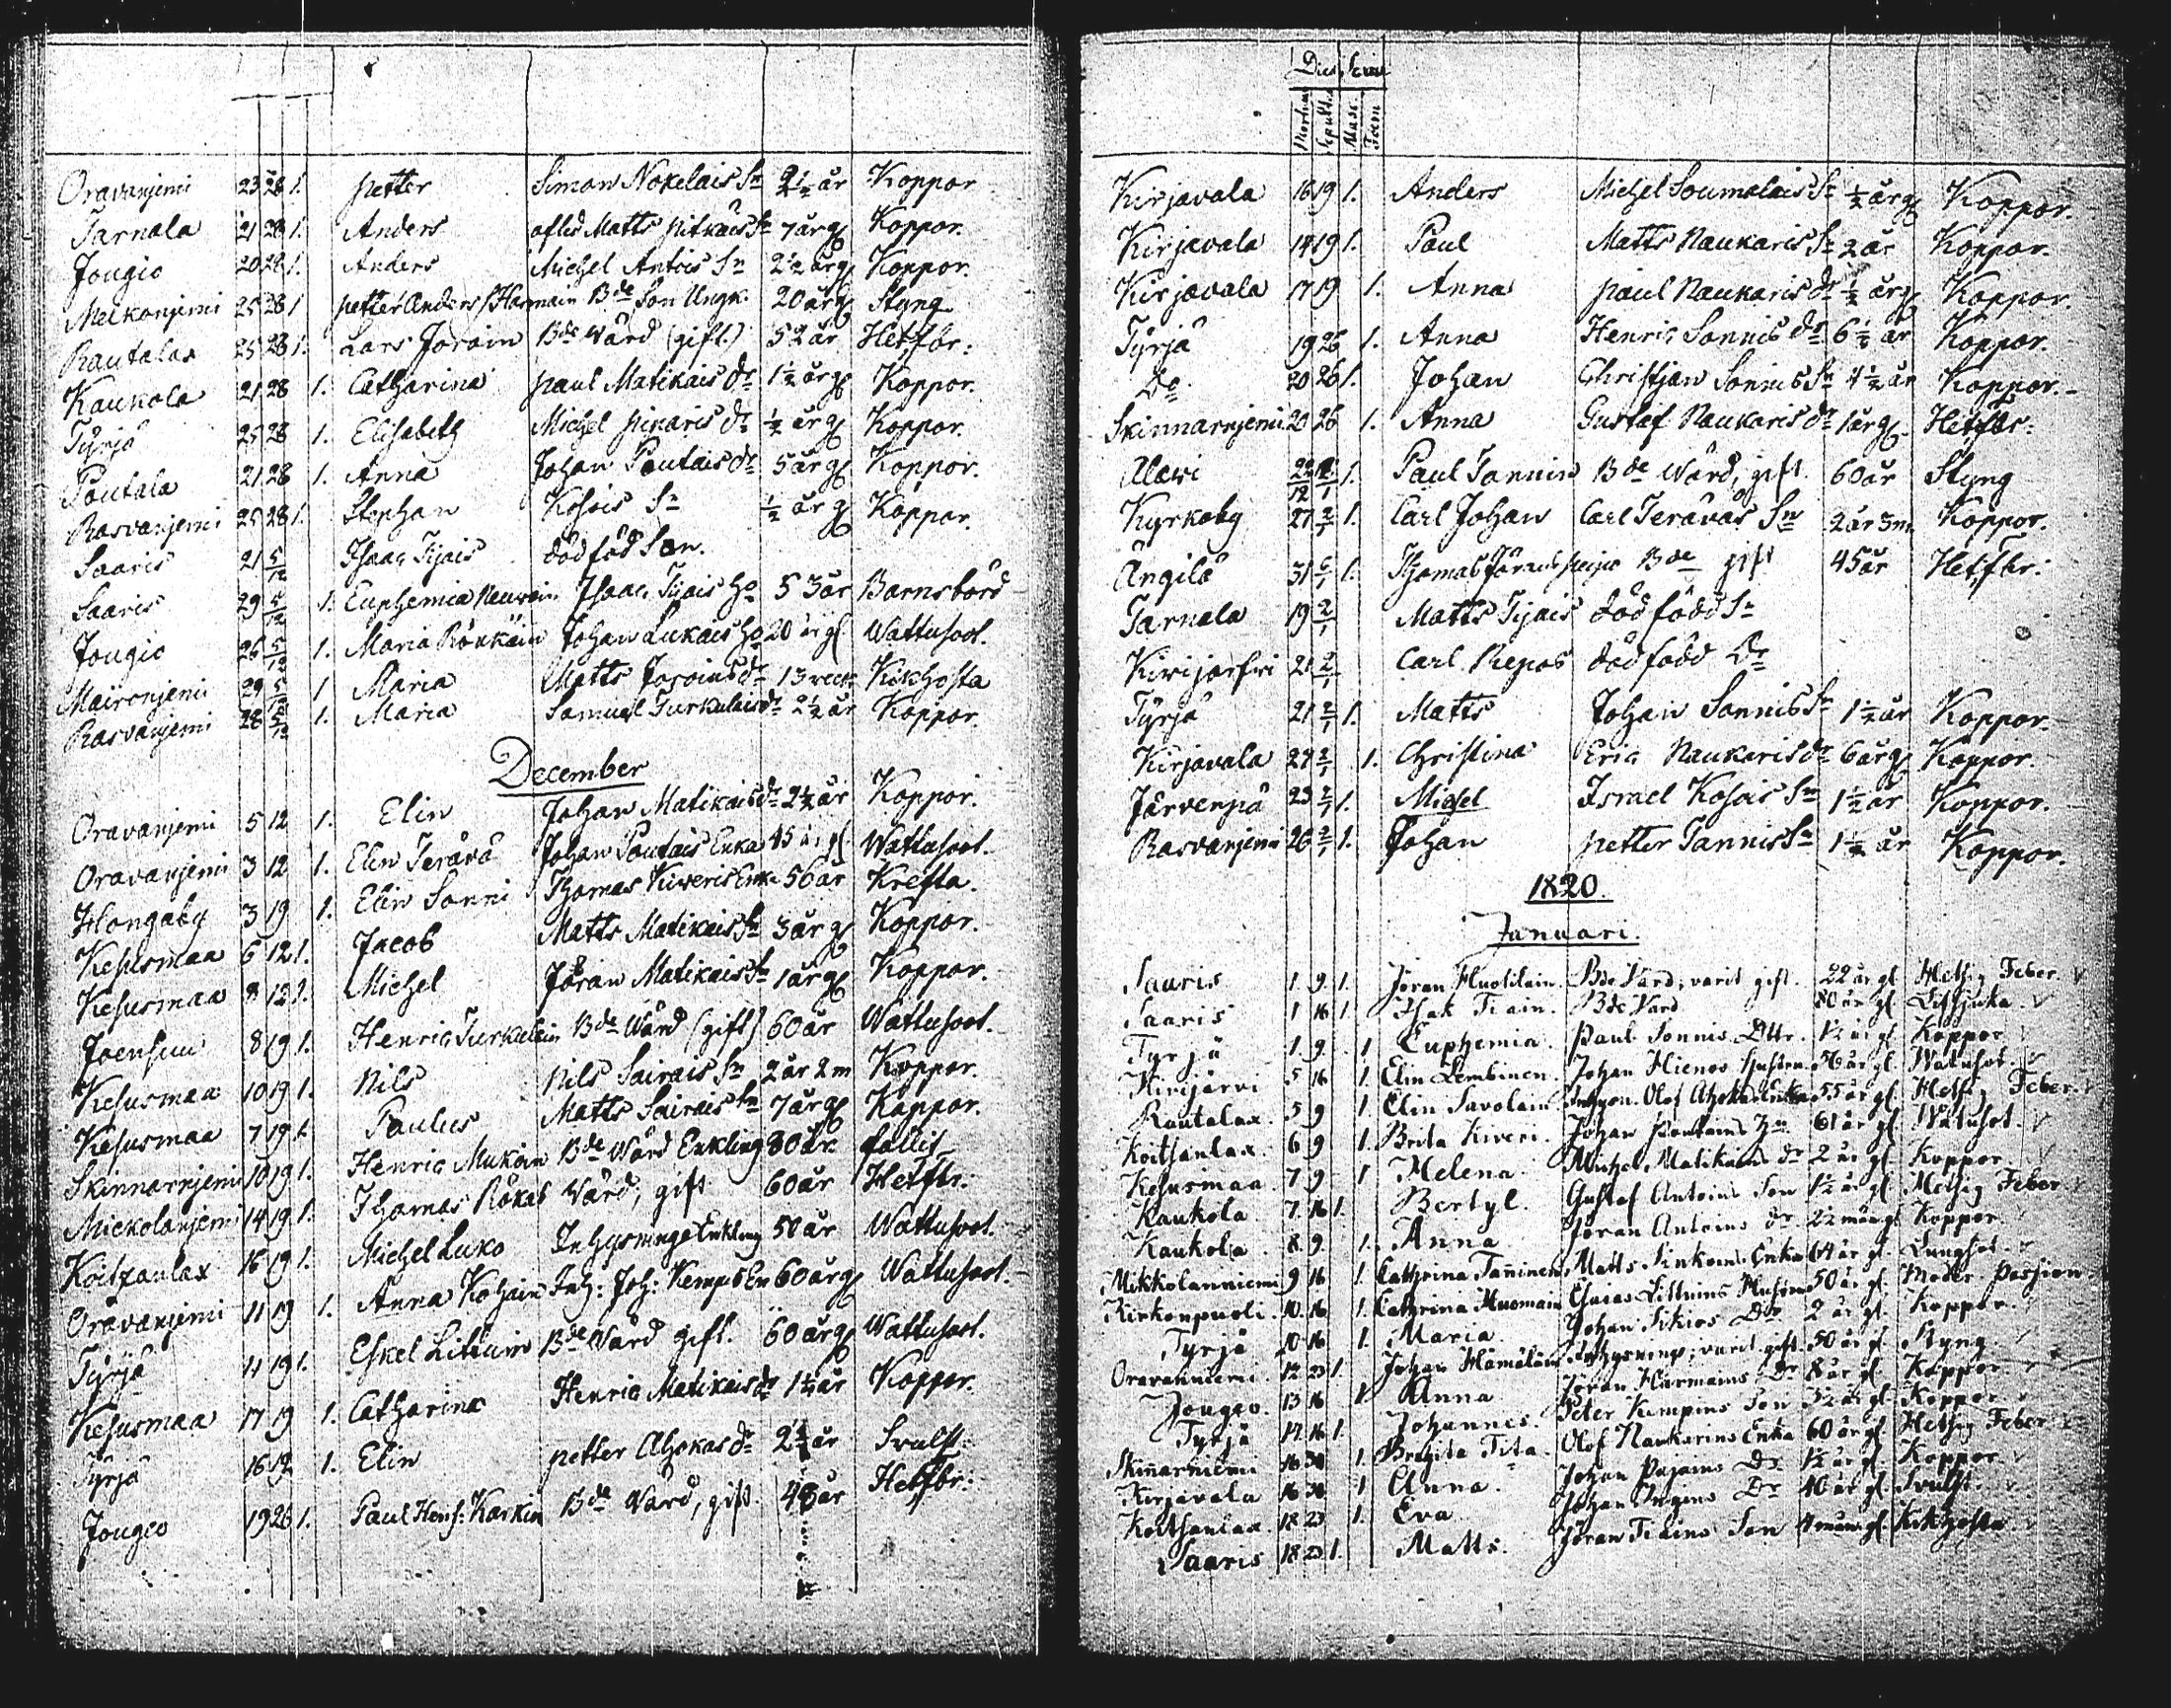 Oravanjemi 23 28 1. petter Simon Nokelais Sn 2½ år Koppor
Tarnala 21 28 1. Anders afled Matts pitkäis Sn 7 år gl Koppor.
Jougio 20 28 1. Anders Michel Antois Sn 2½ år gl Koppor.
Mekonjemi 25 28 1 petter Anders S. Harmain Bde Son Ungk. 20 år gl Styng
Rautalax 25 28 1. Lars Joroin Bde Wärd (gift.) 52 år Hetfbr:
Kaukola 21 28 1. Catharina paul Matikais dr 1½ år gl Koppor.
Tyrjä 25 28 1. Elisabeth Michel pinaris dr ½ år gl Koppor.
Poutala 21 28 1. Anna Johan Poutais dr 5 år gl Koppor.
Rasvanjemi 25 28 1. Stephan Kosois Sn ½ år gl Koppor.
Saaris 21 5/12 Isaac Tijais död föd Son.
Saaris 29 5/12 1. Euphemia Isaac Tijais Ho 53 år Barnsbörd
Jougio 26 5/12 1. Maria Rönkäin Johan Lukais Ho 20 år gl Wattusoot.
Maironjemi 29 5/12 1 Maria Matts Joroins dr 13 veck Kikhosta
Rasvanjemi 28 5/12 1. Maria Samuel Turkulais dr 2½ år Koppor.
December
Oravanjemi 5 12 1. Elin Johan Matikais dr 2½ år Koppor.
Oravanjemi 3 12 1. Elin Terävä Johan Poutais Enka 45 år gl Wattusoot.
Hongaby 3 19 1. Elin Sonni Thomas Kiveris Enka 50 år Krefta.
Kesusmaa 6 12 1. Jacob Matts Matikais Sn 3 år gl Koppor.
Kesusmaa 8 12 1. Michel Jöran Matikais Sn 1 år gl Koppor.
Joensuu 8 19 1. Henric Turkulain Bde Wärd (gift) 60 år Wattusoot.
Kesusmaa 10 19 1. Nils Nils Sairais Sn 2 år 2 m Koppor.
Kesusmaa 7 19 1. Paulus Matts Sairais Sn 7 år gl Koppor.
Skinnarnjemi 10 19 1. Henric Mukoin Bde Wärd Enkling 80 år fallit
Mickolanjemi 14 19 1. Thomas Rökas Wärd, gift 60 år Hetfbr:
Koitzanlax 16 19 1. Michel Luko Inhysninge Enkling 50 år Wattusoot.
Oravanjemi 11 19 1. Anna Kohain Inh: Joh: Kemps En 60 år gl Wattusoot.
Tyrjä 11 19 1. Eskel Littuin Bde Wärd gift. 60 år gl Wattusoot.
Kesusmaa 17 19 1. Catharina Henric Matikais dr 1½ år Koppor.
Tyrjä 16 19 1. Elin petter Ahokas dr 2½ år Svulst:
Jougeo 19 26 1. Paul Hens: Karkin Bde Wärd, gift 48 år Hetfbr:
Dies Sexus
Mortuus Sepultus Masc. Foem
Kirjavala 16 19 1. Anders Michel Soumolais Sn ½ år gl Koppor.
Kirjavala 14 19 1. Paul Matts Naukaris Sn 2 år Koppor.
Kirjavala 17 19 1. Anna paul Naukaris dr ½ år gl Koppor.
Tyrjä 19 26 1. Anna Henric Sonnis dr 6½ år Koppor.
Do 20 26 1. Johan Christjan Sonnis Sn 4½ år Koppor.
Skinnarnjemi 20 26 1. Anna Gustaf Naukaris dr 1 år gl Hetfbr:
Alawi 22/12 2/1 1. Paul Tannin Bde Wärd, gift. 60 år Styng
Kyrkoby 27 2/1 1. Carl Johan Carl Teräväs Sn 2 år 3 m Koppor.
Ängilä 31 6/1 1. Thomas Bde gift 45 år Hetfbr:
Tarnala 19 2/1 Matts Tijais död född Sn
Kirijarfwi 21 2/1 Carl Repos död född Dr
Tyrjä 21 2/1 1. Matts Johan Sonnis Sn 1½ år Koppor.
Kirjavala 27 2/1 1. Christina Eric Naukaris dr 6 år gl Koppor.
Järvenpä 23 2/1 1. Michel Israel Kosois Sn 1½ år Koppor.
Rasvanjemi 26 2/1 1. Johan petter Tannis Sn 1½ år Koppor.
1820.
Januari.
Saaris 1. 9. 1. Jöran Huotilain. Bde Värd; varit gift. 22 år gl Hetsig Feber.
Saaris 1 16 1. Isak Tiain. Bde Värd 80 år gl
Tyrjä 1. 9. 1 Euphemia. Paul Sonnis Dttr. 1½ år gl Koppor
Kirijärvi 5 16 1. Elin Lembinen. Johan Hienos Hustru 56 år gl. Watusot.
Rautalax. 5 9 1. Elin Savolain Olof Ahokas Enka 55 år gl. Hetsig Feber.
Koitsanlax. 6 9 1. Brita Kiveri. Johan Poutains Hu 61 år gl Watusot.
Kesusmaa. 7 9 1 Helena Michel Matikains dr 2 år gl Koppor
Kaukola 7. 16 1. Bertyl. Gustaf Antoins Son 1½ år gl Hetsig Feber
Kaukola 8. 9. 1. Anna Jöran Antoins dr 2½ mån gl Koppor
Mikkolanniemi 9 16 1. Cathrina Tanninen Matts Sinkoins Enka 64 år gl. Lungsot.
Kirkonpuoli. 10. 16 1. Cathrina Huomain Littuins Hustru 50 år gl. Moder Passion.
Tyrjä 10 16 1. Maria. Johan Sikios Dr 2 år gl. Koppor.
Oravanniemi. 12 23 1. Johan Hämäläin Inhysning; varit gift 50 år gl Styng
Jougeo. 13 16 1. Anna Jöran Harmains Dr 8 år gl. Koppor
Tyrjä 14 16 1. Johannes. Peter Kempins Son 3½ år gl Koppor
Skinarniemi 16 30 1. Bregita Tita. Olof Naukarins Enka 60 år gl Hetsig Feber
Kirjavala 16 30 1 Anna. Johan Pajains Dr 1½ år gl. Koppor
Koitsanlax. 18 23 1. Eva Johan Ingins Dr 10 år gl Svulst.
Saaris 18 23 1. Matts. Jöran Tiains Son 4 mån gl. Kikhosta